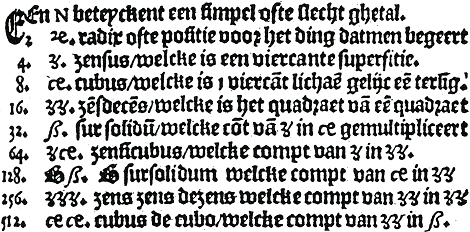 EEn N beteyckent een simpel ofte slecht ghetal.
2. ꝛe. radix ofte positie voor het ding datmen begeert
4. ʒ. zensus/welcke is een viercante superfitie.
8. ce. cubus/welcke is 1 viercãt lichaẽ gelijc eẽ terlĩg.
16. ʒʒ. zẽsdecẽs/welcke is het quadraet vã eẽ quadraet
32. ß. sur solidũ/welcke cõt vã ʒ in ce gemultipliceert
64. ʒce. zensicubus/welcke compt van ʒ in ʒʒ.
128. B ß. B sursolidum welcke compt van ce in ʒʒ
256. ʒʒʒ. zens zens dezens welcke compt van ʒʒ in ʒʒ
512. ce ce. cubus de cubo/welcke compt van ʒʒ in ß.